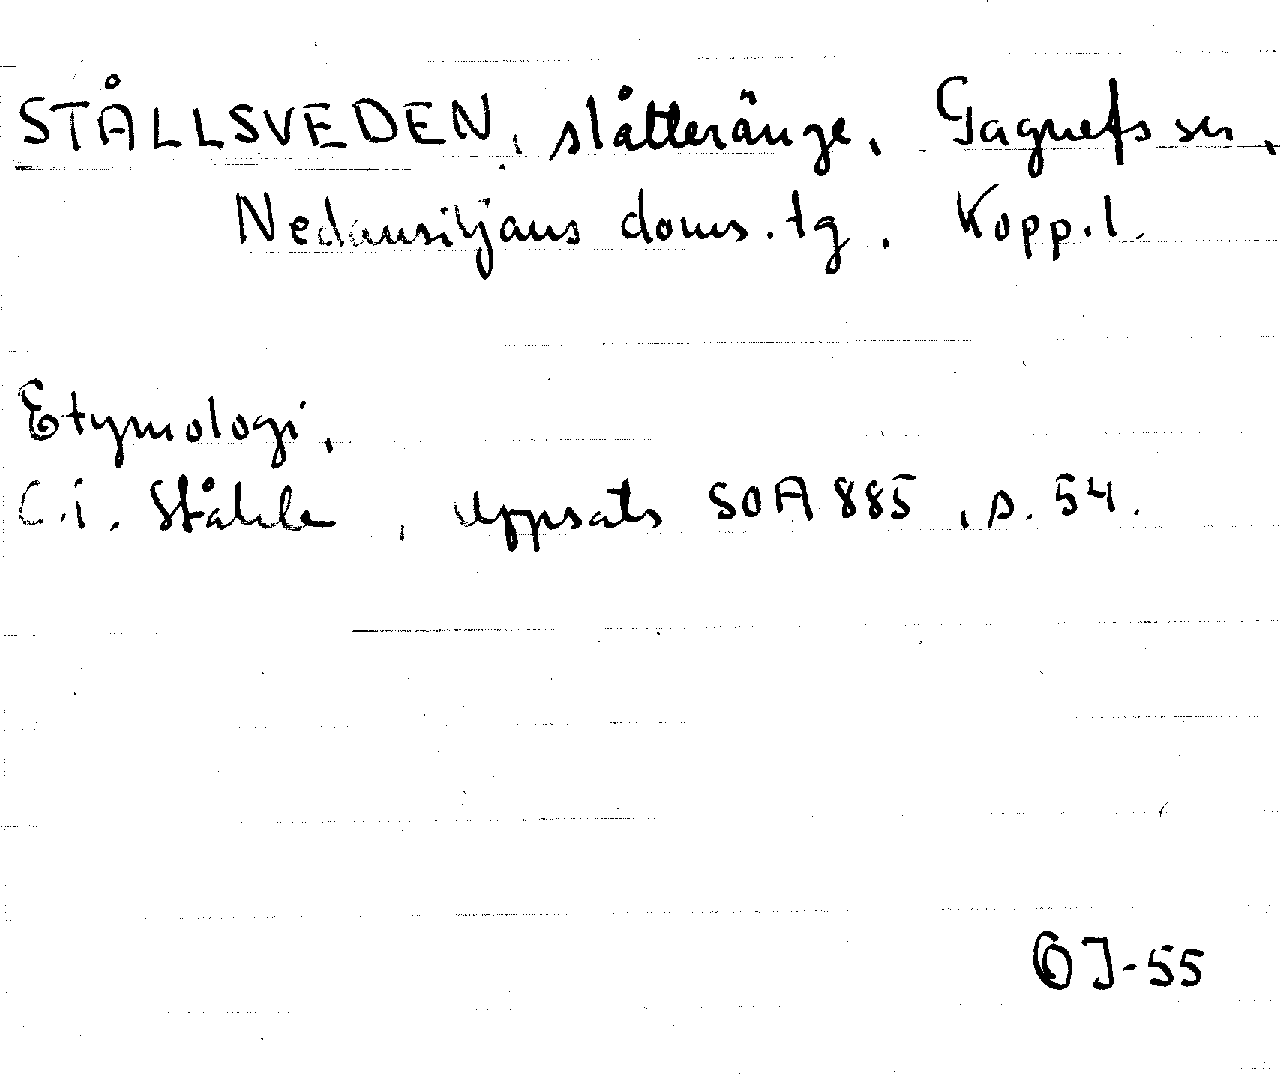 STÅLLSVEDEN, slåtteränge, Gagnefs sn,
Nedansiljans doms. tg. Kopp.l.
Etymologi,
C.i. Ståhle, uppsats SOA 885, s. 54.
OJ-55